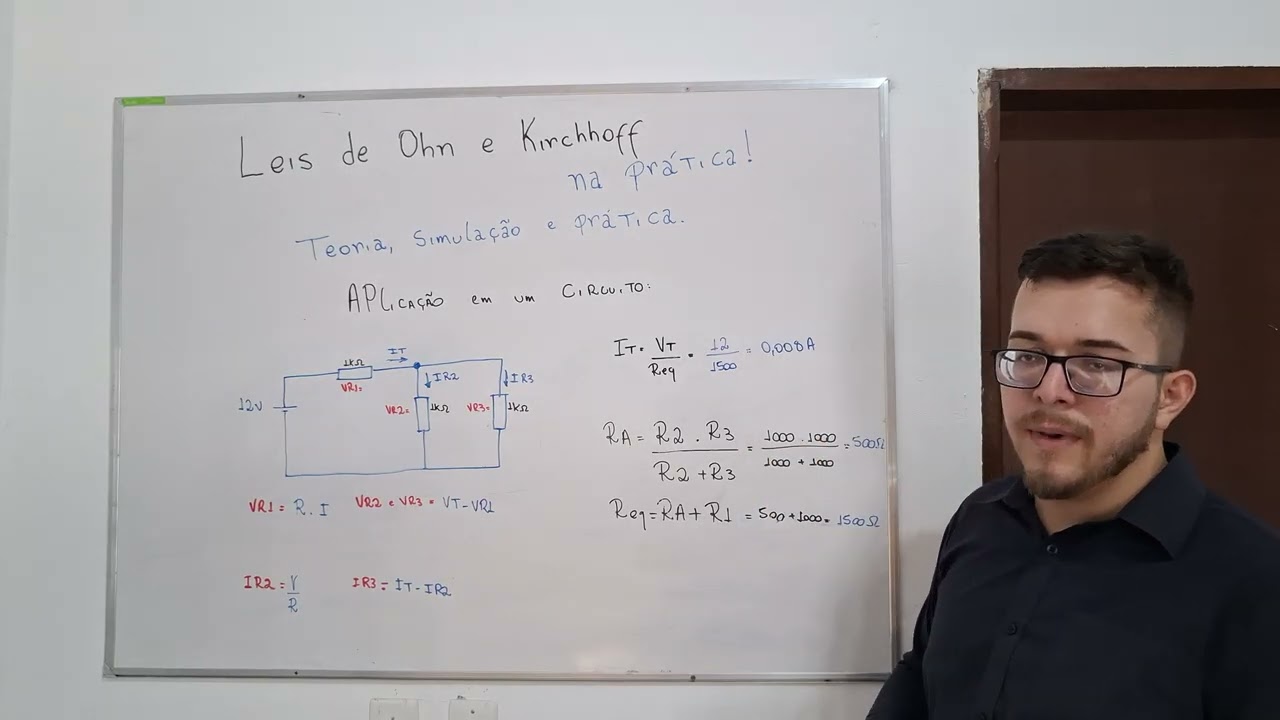 Leis de Ohn e Kirchhoff
na prática!
Teoria, Simulação e prática.
APLicação em um CIRCUITO:
IT = VT / Req = 12 / 1500 = 0,008A
1KΩ
IT
VR1=
12V
IR2
IR3
VR2=
1KΩ
VR3=
1KΩ
RA = R2 . R3 / R2 + R3 = 1000 . 1000 / 1000 + 1000 = 500Ω
Req = RA + R1 = 500 + 1000 = 1500Ω
VR1 = R . I
VR2 e VR3 = VT - VR1
IR2 = V / R
IR3 = IT - IR2